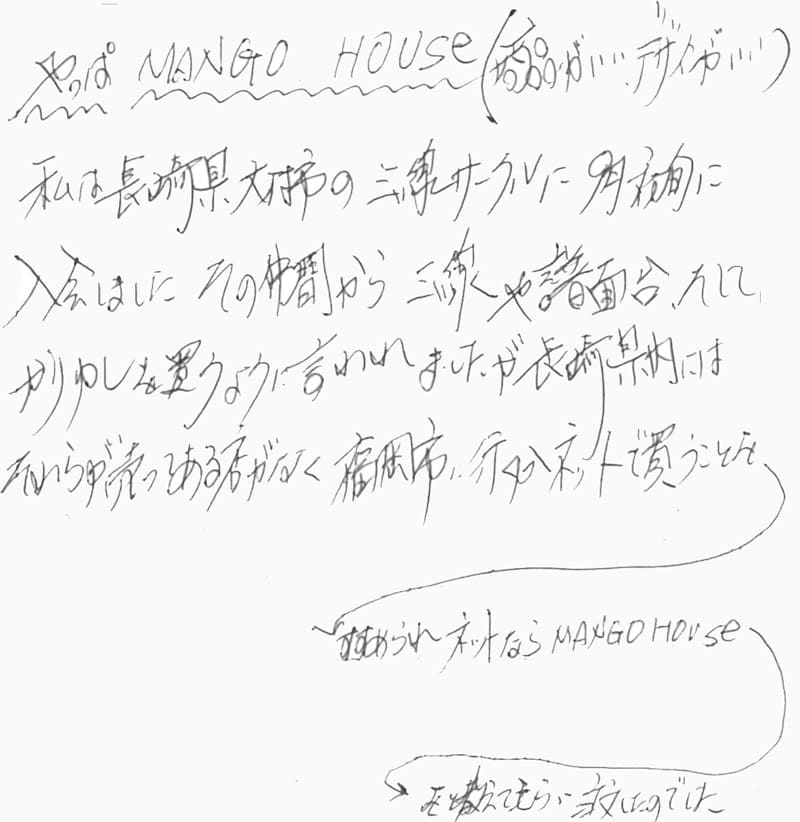 やっぱ MANGO HOUSE(商品がいい、デザインがいい)
私は長崎県大村市の三線サークルに9月初旬に
入会しました その仲間から三線や譜面台、そして
かりゆしを買うように言われましたが長崎県内には
それらが売ってある店がなく 福岡市に行くか ネットで買うことを
すすめられ ネットなら MANGO HOUSE
を教えてもらい 注文したのでした